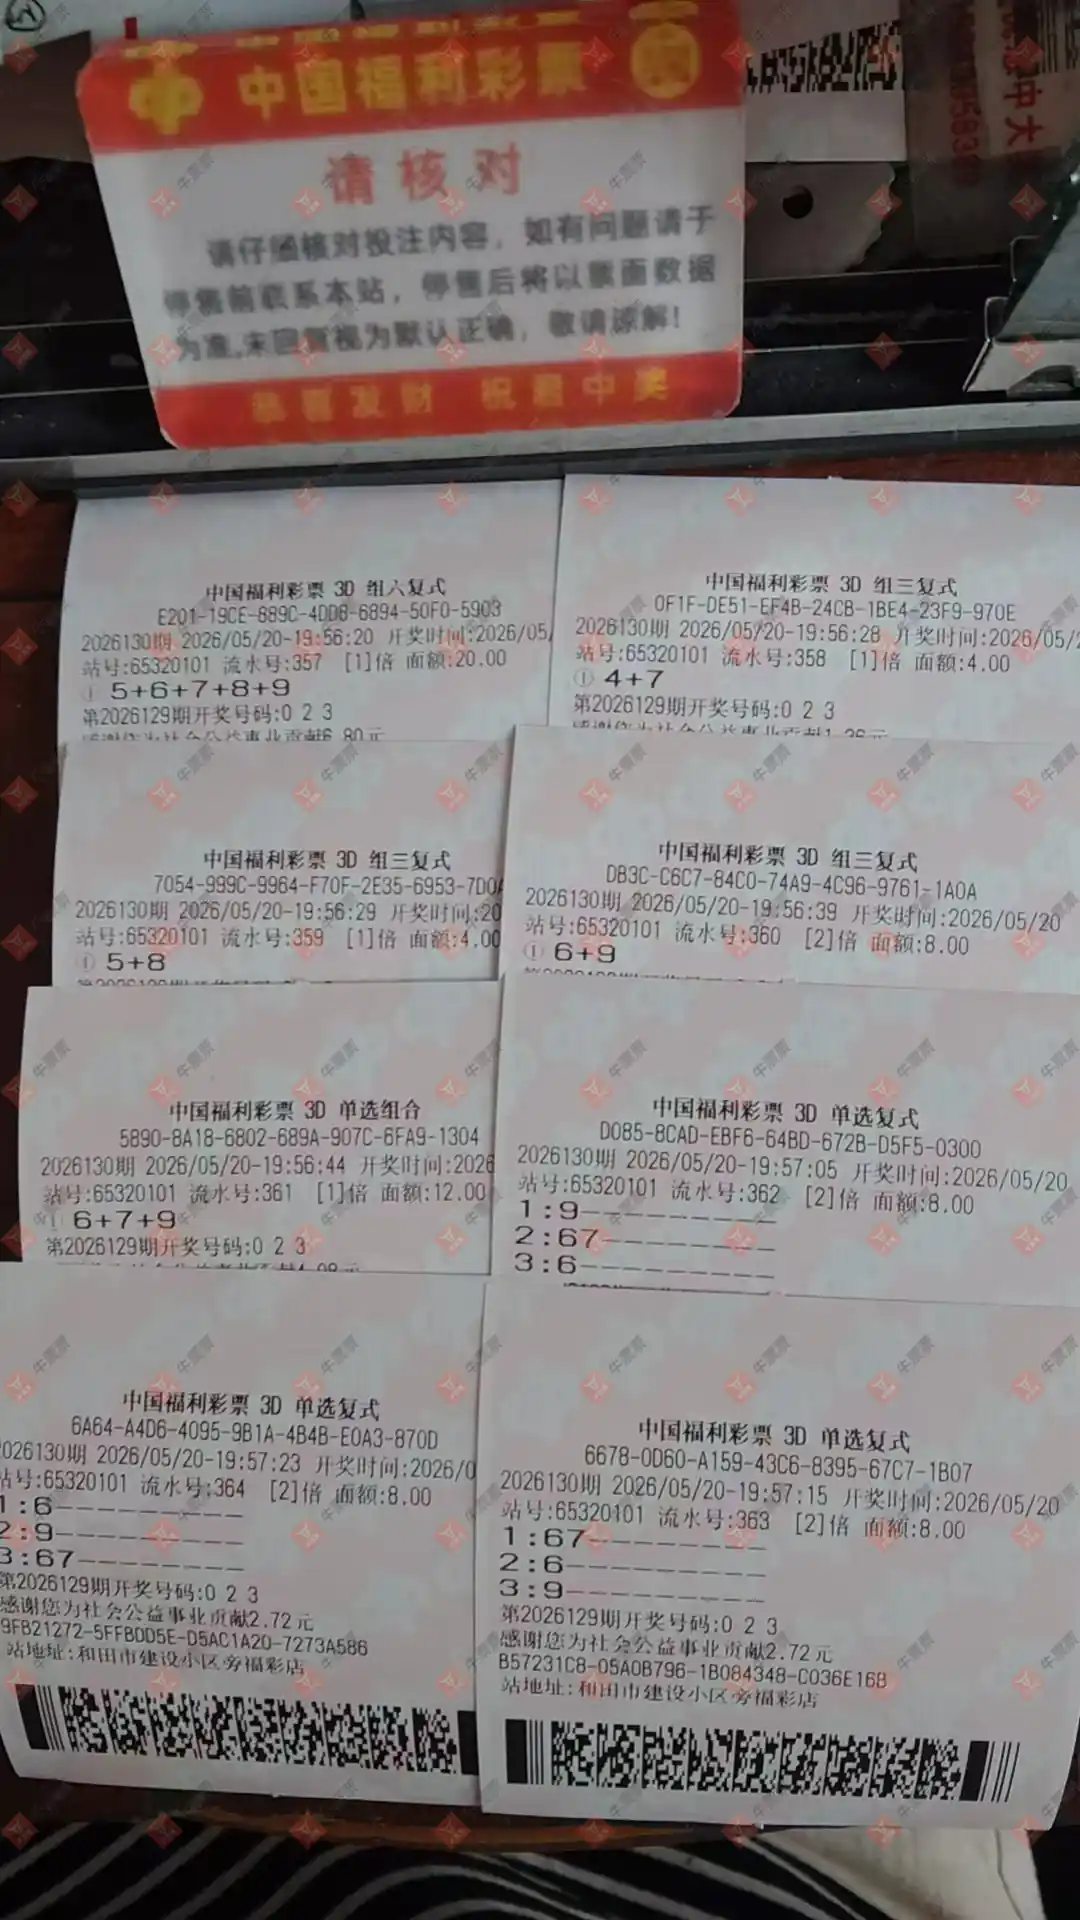 中国福利彩票
请核对
请仔细核对投注内容，如有问题请于
停售前联系本站，停售后将以票面数据
为准，未回复视为默认正确，敬请谅解！
恭喜发财 祝君中奖
中大
中国福利彩票 3D 组六复式
E201-19CE-889C-4DD8-6894-50F0-5903
2026130期 2026/05/20-19:56:20 开奖时间:2026/05/
站号:65320101 流水号:357 [1]倍 面额:20.00
① 5+6+7+8+9
第2026129期开奖号码:0 2 3
感谢您为社会公益事业贡献6.80元
中国福利彩票 3D 组三复式
0F1F-DE51-EF4B-24CB-1BE4-23F9-970E
2026130期 2026/05/20-19:56:28 开奖时间:2026/05/2
站号:65320101 流水号:358 [1]倍 面额:4.00
① 4+7
第2026129期开奖号码:0 2 3
感谢您为社会公益事业贡献1.36元
中国福利彩票 3D 组三复式
7054-999C-9964-F70F-2E35-6953-7D0A
2026130期 2026/05/20-19:56:29 开奖时间:20
站号:65320101 流水号:359 [1]倍 面额:4.00
① 5+8
中国福利彩票 3D 组三复式
DB3C-C6C7-84C0-74A9-4C96-9761-1A0A
2026130期 2026/05/20-19:56:39 开奖时间:2026/05/20
站号:65320101 流水号:360 [2]倍 面额:8.00
① 6+9
中国福利彩票 3D 单选组合
5890-8A18-6802-689A-907C-6FA9-1304
2026130期 2026/05/20-19:56:44 开奖时间:2026
站号:65320101 流水号:361 [1]倍 面额:12.00
① 6+7+9
第2026129期开奖号码:0 2 3
中国福利彩票 3D 单选复式
D085-8CAD-EBF6-64BD-672B-D5F5-0300
2026130期 2026/05/20-19:57:05 开奖时间:2026/05/20
站号:65320101 流水号:362 [2]倍 面额:8.00
1:9----------
2:67---------
3:6----------
中国福利彩票 3D 单选复式
6A64-A4D6-4095-9B1A-4B4B-E0A3-870D
2026130期 2026/05/20-19:57:23 开奖时间:2026/0
站号:65320101 流水号:364 [2]倍 面额:8.00
1:6----------
2:9----------
3:67---------
第2026129期开奖号码:0 2 3
感谢您为社会公益事业贡献2.72元
9FB21272-5FFBDD5E-D5AC1A20-7273A586
站地址:和田市建设小区旁福彩店
中国福利彩票 3D 单选复式
6678-0D60-A159-43C6-8395-67C7-1B07
2026130期 2026/05/20-19:57:15 开奖时间:2026/05/20
站号:65320101 流水号:363 [2]倍 面额:8.00
1:67---------
2:6----------
3:9----------
第2026129期开奖号码:0 2 3
感谢您为社会公益事业贡献2.72元
B57231C8-05A0B796-1B084348-C036E16B
站地址:和田市建设小区旁福彩店
牛票票